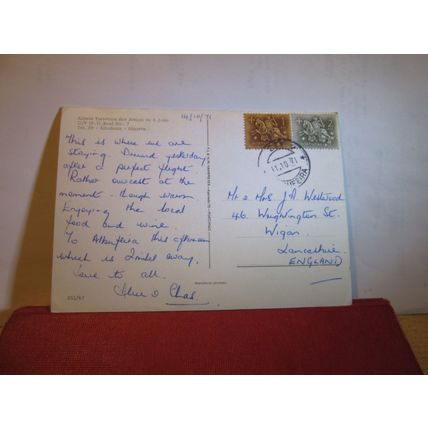 Aldeia Turistica das Areias de S. João
Albufeira - Algarve
10/10/71
This is where we are
staying. Arrived yesterday
after a perfect flight.
Rather overcast at the
moment - though warm
Enjoying the local
food and wine.
To Albufeira this afternoon
which is 2 miles away.
Love to all.
& Chas.
11.10.71
Mr & Mrs. J. A. Westwood
46. Wrightington St.
Wigan.
Lancashire.
ENGLAND